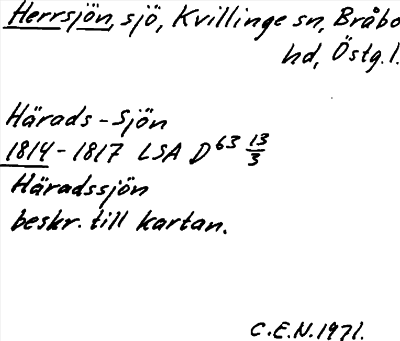 Herrsjön, sjö, Kvillinge sn, Bråbo
hd, Östg.l.
Härads-Sjön
1814-1817 LSA D 63 13/3
Häradssjön
beskr. till kartan.
C.E.N. 1971.